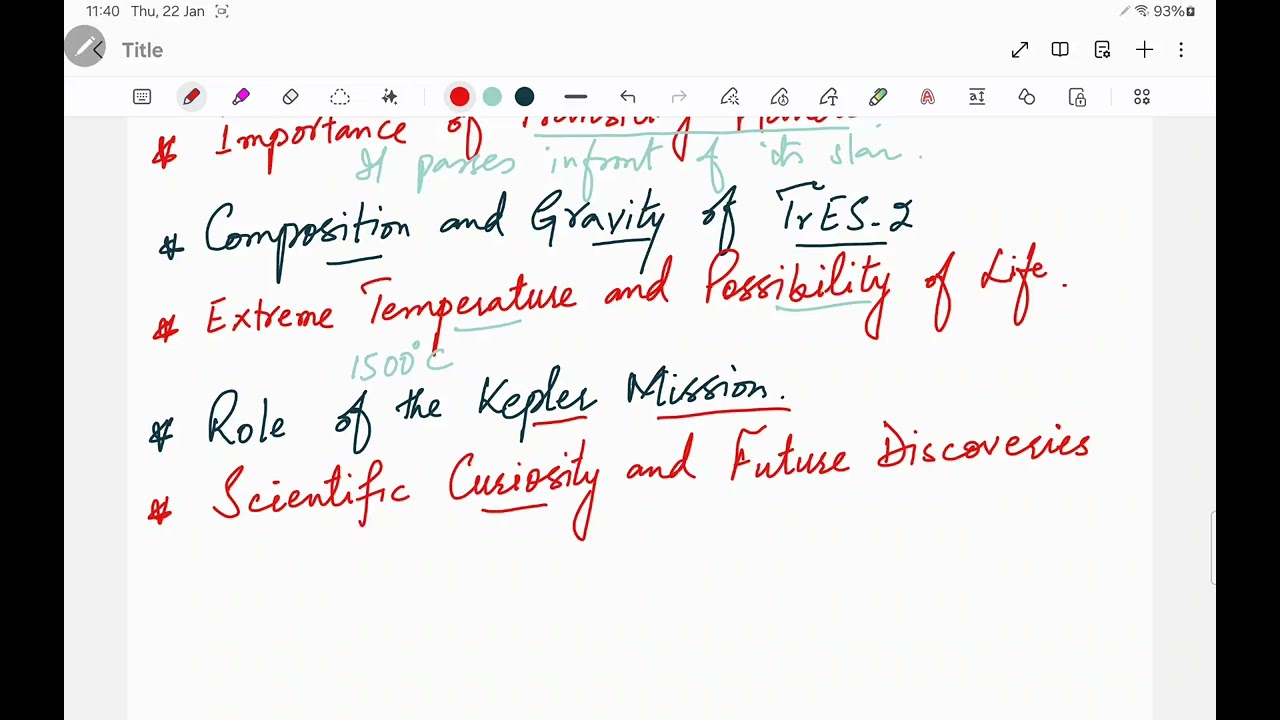 11:40 Thu, 22 Jan 93%
Title
* Importance of
It passes infront of its star.
* Composition and Gravity of TrES-2
* Extreme Temperature and Possibility of Life.
1500°C
* Role of the Kepler Mission.
* Scientific Curiosity and Future Discoveries